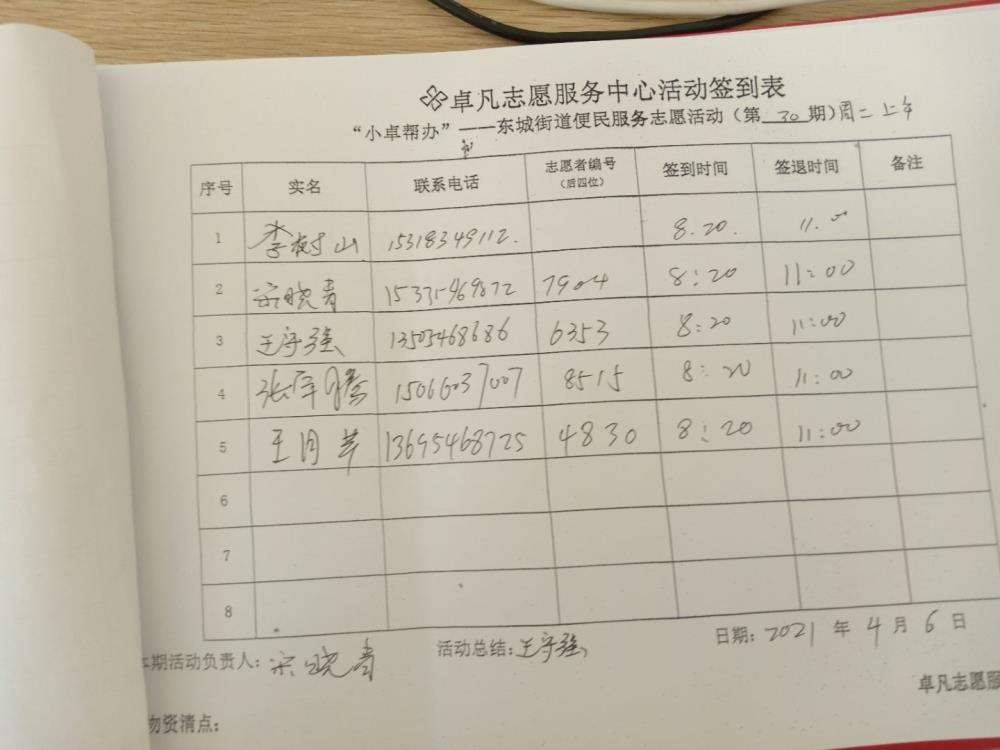 卓凡志愿服务中心活动签到表
“小卓帮办”——东城街道便民服务志愿活动（第 30 期）周二上午
序号 实名 联系电话 志愿者编号（后四位） 签到时间 签退时间 备注
1 李树山 15318349112. 8.20. 11.00
2 宋晓青 15335469872 7904 8:20 11:00
3 王守强 13505468686 6353 8:20 11:00
4 张军腾 15066037007 8515 8:20 11:00
5 王月苹 13695468725 4830 8:20 11:00
6
7
8
本期活动负责人：宋晓青 活动总结：王守强 日期：2021 年 4 月 6 日
卓凡志愿服
物资清点：